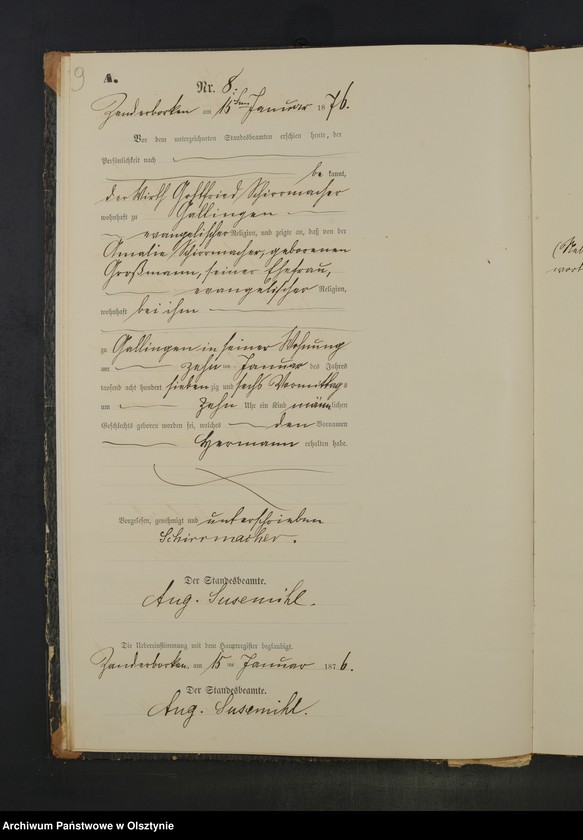 9
A.
Nr. 8.
Zanderborken am 15ten Januar 1876.
Vor dem unterzeichneten Standesbeamten erschien heute, der
Persönlichkeit nach
bekannt,
der Wirth Gottfried Schirrmacher
wohnhaft zu Gallingen
evangelischer Religion, und zeigte an, daß von der
Amalie Schirrmacher, geborenen
Großmann, seiner Ehefrau,
evangelischer Religion,
wohnhaft bei ihm
zu Gallingen in seiner Wohnung
am zehnten Januar des Jahres
tausend acht hundert siebenzig und sechs Vormittags
um zehn Uhr ein Kind männlichen
Geschlechts geboren worden sei, welches den Vornamen
Hermann erhalten habe.
Vorgelesen, genehmigt und unterschrieben
Schirrmacher.
Der Standesbeamte.
Aug. Susemihl.
Die Uebereinstimmung mit dem Hauptregister beglaubigt.
Zanderborken am 15ten Januar 1876.
Der Standesbeamte.
Aug. Susemihl.
Archiwum Państwowe w Olsztynie